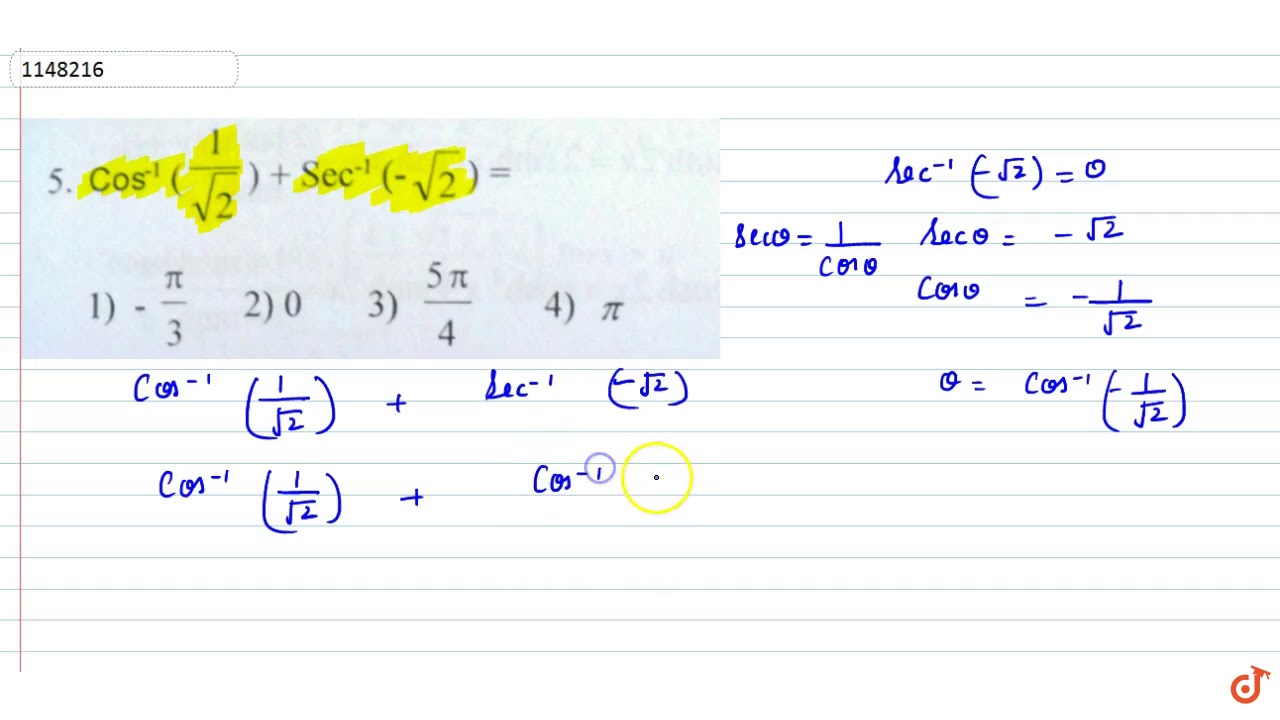 1148216
5. Cos⁻¹(1/√2) + Sec⁻¹(-√2) =
1) - π/3 2) 0 3) 5π/4 4) π
Sec⁻¹ (-√2) = θ
Secθ = 1/Cosθ Secθ = - √2
Cosθ = - 1/√2
θ = Cos⁻¹ (- 1/√2)
Cos⁻¹ (1/√2) + Sec⁻¹ (-√2)
Cos⁻¹ (1/√2) + Cos⁻¹